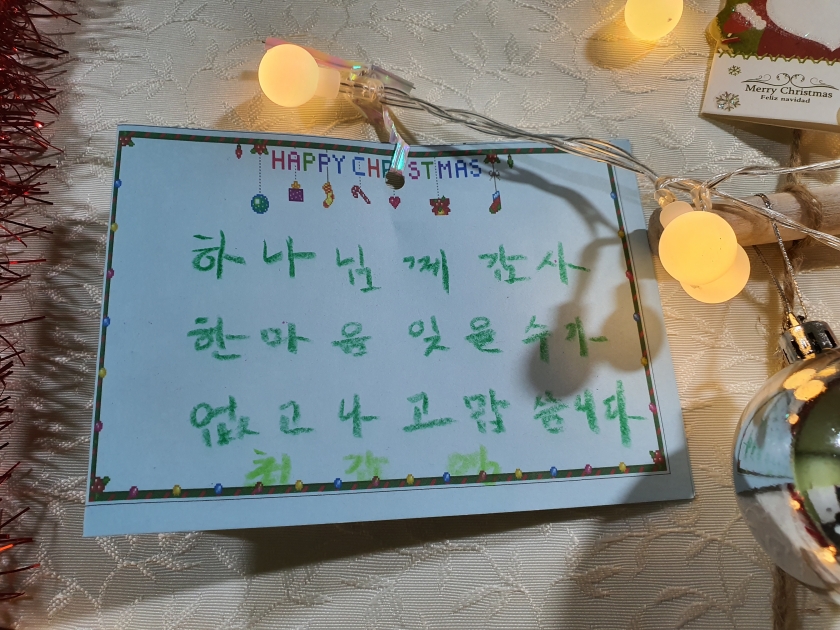 HAPPY CHRISTMAS
하나님께 감사
한마음 잊을수가
없고나 고맙습니다
Merry Christmas
Feliz navidad